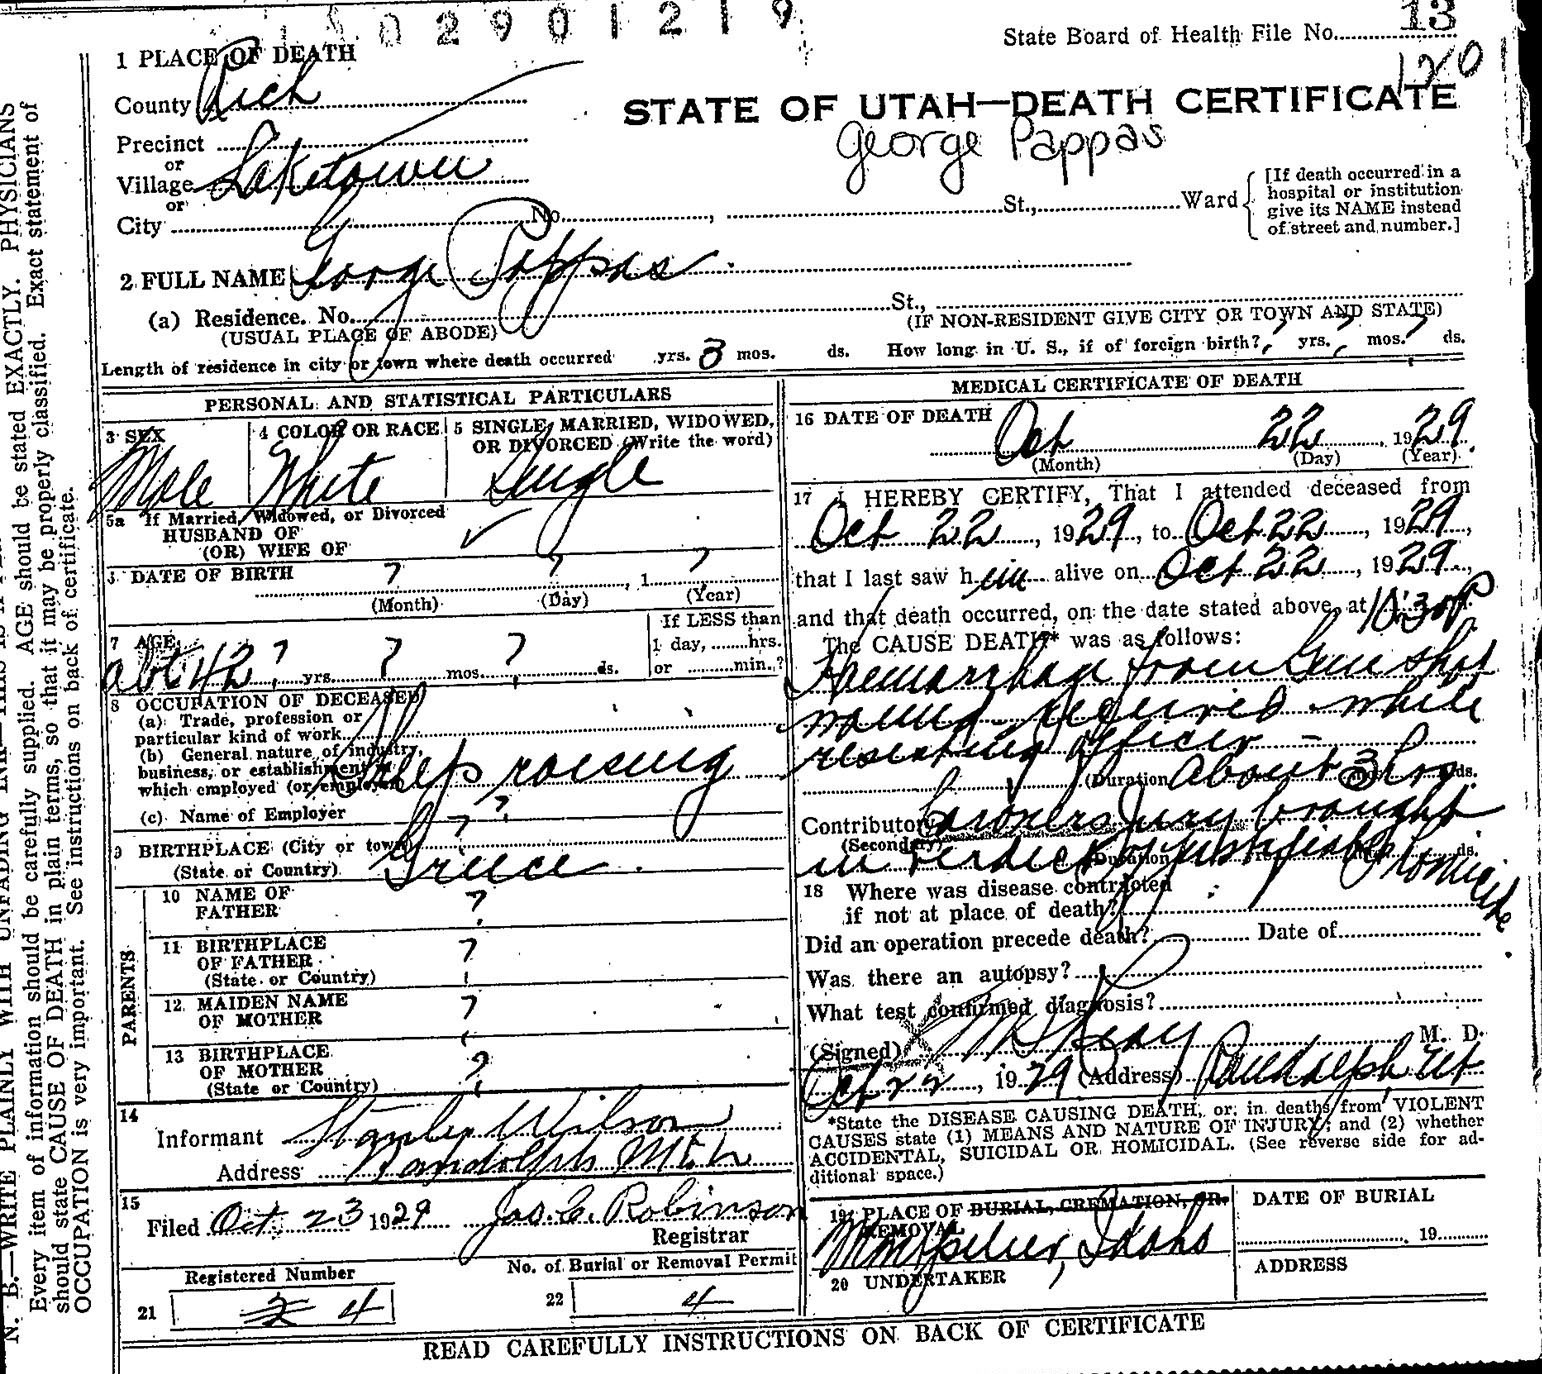 02901219
State Board of Health File No. 13
120
1 PLACE OF DEATH
County Rich
STATE OF UTAH—DEATH CERTIFICATE
George Pappas
Precinct
or
Village Laketown
or
City No. , St., Ward
[If death occurred in a
hospital or institution
give its NAME instead
of street and number.]
2 FULL NAME George Pappas
(a) Residence. No. St.,
(USUAL PLACE OF ABODE) (IF NON-RESIDENT GIVE CITY OR TOWN AND STATE)
Length of residence in city or town where death occurred yrs. 3 mos. ds. How long in U. S., if of foreign birth? ? yrs. ? mos. ? ds.
PERSONAL AND STATISTICAL PARTICULARS
3 SEX 4 COLOR OR RACE 5 SINGLE, MARRIED, WIDOWED,
OR DIVORCED (Write the word)
Male White Single
5a If Married, Widowed, or Divorced
HUSBAND OF
(OR) WIFE OF
DATE OF BIRTH ? ? , 1 ?
(Month) (Day) (Year)
7 AGE
abt 42 ? yrs. ? mos. ? ds.
If LESS than
1 day, ........hrs.
or .........min.?
8 OCCUPATION OF DECEASED
(a) Trade, profession or
particular kind of work
(b) General nature of industry,
business, or establishment in
which employed (or employer) Sheep raising
(c) Name of Employer ?
9 BIRTHPLACE (City or town) ?
(State or Country) Greece
PARENTS
10 NAME OF
FATHER ?
11 BIRTHPLACE
OF FATHER ?
(State or Country)
12 MAIDEN NAME
OF MOTHER ?
13 BIRTHPLACE
OF MOTHER ?
(State or Country)
14
Informant Stanley Wilson
Address Randolph Utah
15
Filed Oct 23 1929 Jos. C. Robinson
Registrar
Registered Number No. of Burial or Removal Permit
21 2 4 22 4
MEDICAL CERTIFICATE OF DEATH
16 DATE OF DEATH Oct 22, 1929
(Month) (Day) (Year)
17 I HEREBY CERTIFY, That I attended deceased from
Oct 22, 1929, to Oct 22, 1929,
that I last saw him alive on Oct 22, 1929,
and that death occurred, on the date stated above, at 10:30 P
The CAUSE DEATH* was as follows:
Haemorrhage from Gun shot
wound received while
resisting officer —
(Duration about 3 hrs ds.
Contributory Coroners Jury brought
(Secondary) in verdict of justifiable homicide.
(Duration ds.
18 Where was disease contracted
if not at place of death?
Did an operation precede death? Date of
Was there an autopsy?
What test confirmed diagnosis?
(Signed) M. D.
Oct 22, 1929 (Address) Randolph, Ut
*State the DISEASE CAUSING DEATH, or, in deaths from VIOLENT
CAUSES state (1) MEANS AND NATURE OF INJURY; and (2) whether
ACCIDENTAL, SUICIDAL OR HOMICIDAL. (See reverse side for ad-
ditional space.)
19 PLACE OF BURIAL, CREMATION, OR
REMOVAL
Montpelier, Idaho
DATE OF BURIAL
19
20 UNDERTAKER ADDRESS
READ CAREFULLY INSTRUCTIONS ON BACK OF CERTIFICATE
Every item of information should be carefully supplied. AGE should be stated EXACTLY. PHYSICIANS
should state CAUSE OF DEATH in plain terms, so that it may be properly classified. Exact statement of
OCCUPATION is very important. See instructions on back of certificate.
N. B.—WRITE PLAINLY WITH UNFADING INK—THIS IS A